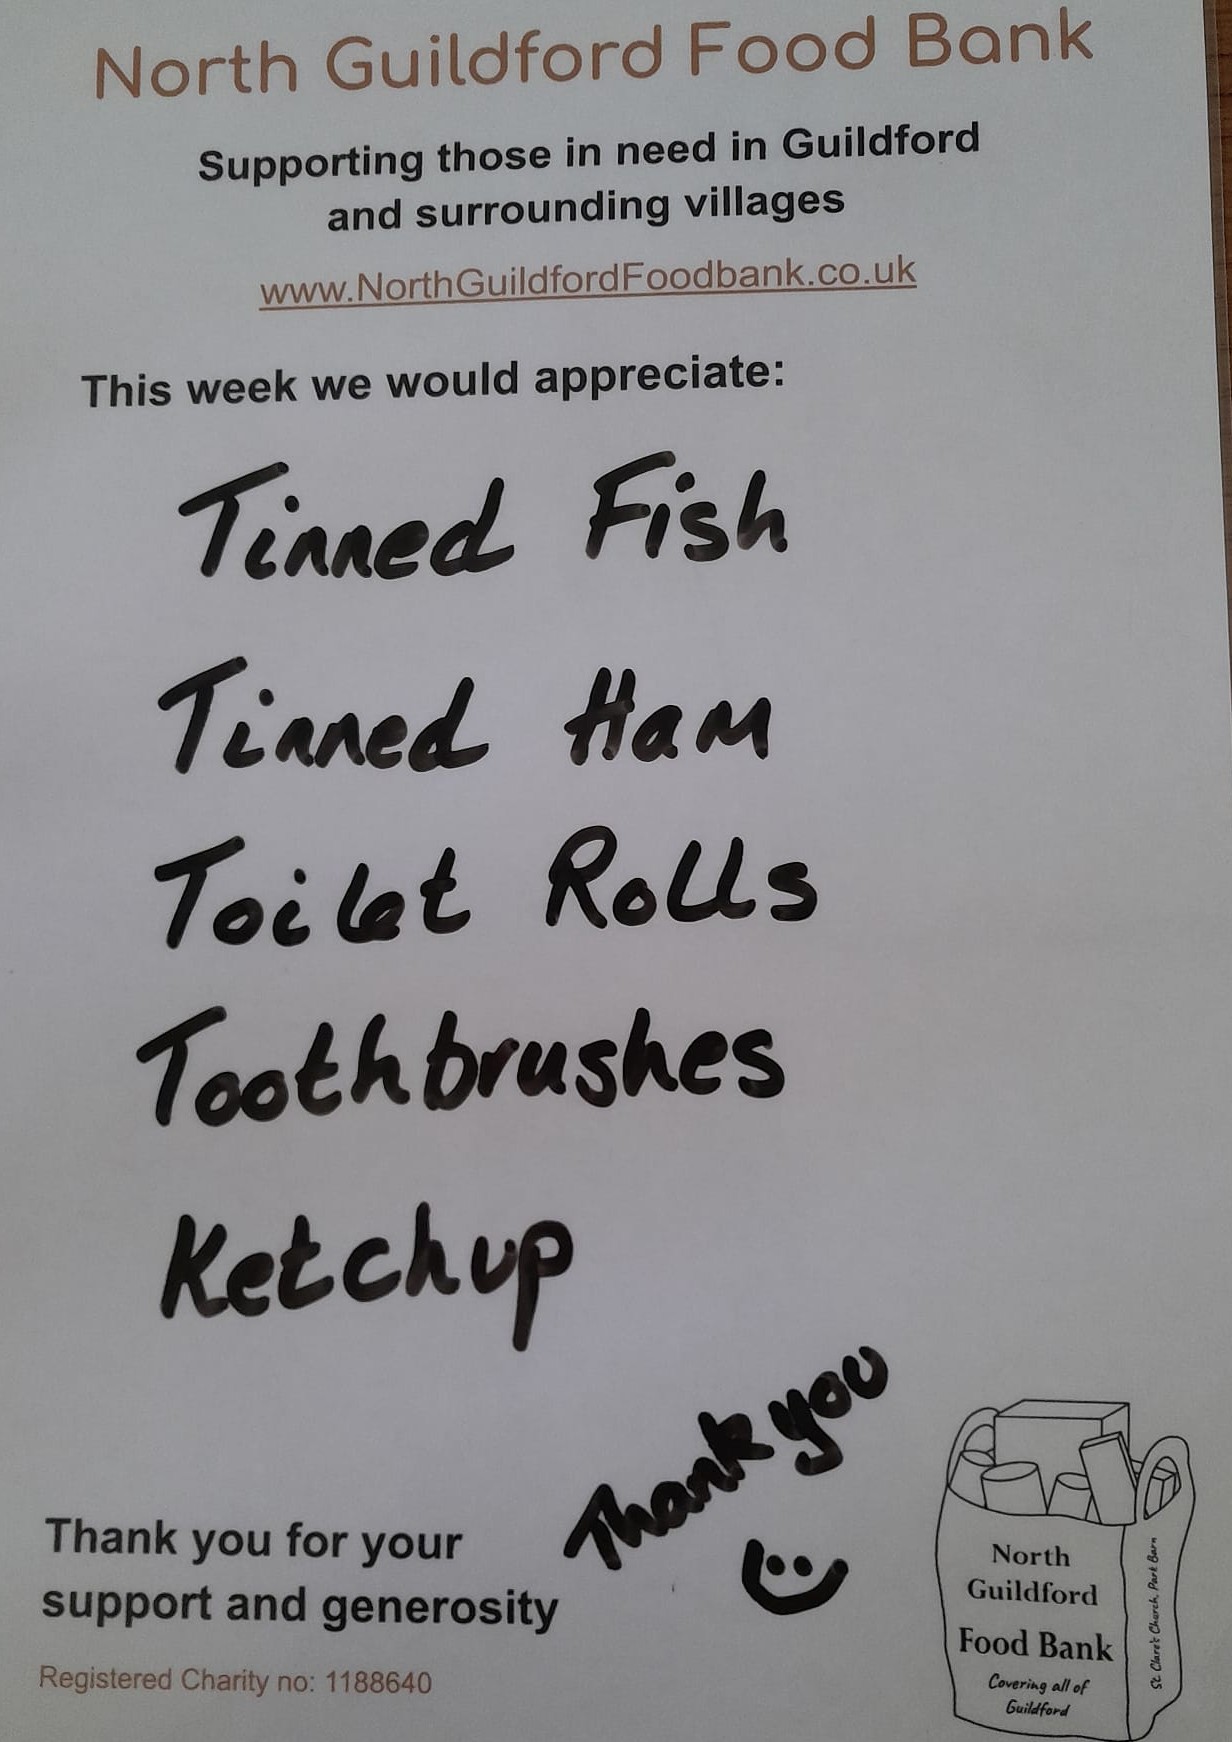 North Guildford Food Bank
Supporting those in need in Guildford
and surrounding villages
www.NorthGuildfordFoodbank.co.uk
This week we would appreciate:
Tinned Fish
Tinned Ham
Toilet Rolls
Toothbrushes
Ketchup
Thank you
Thank you for your
support and generosity
Registered Charity no: 1188640
North
Guildford
Food Bank
Covering all of
Guildford
St. Clare's Church, Park Barn